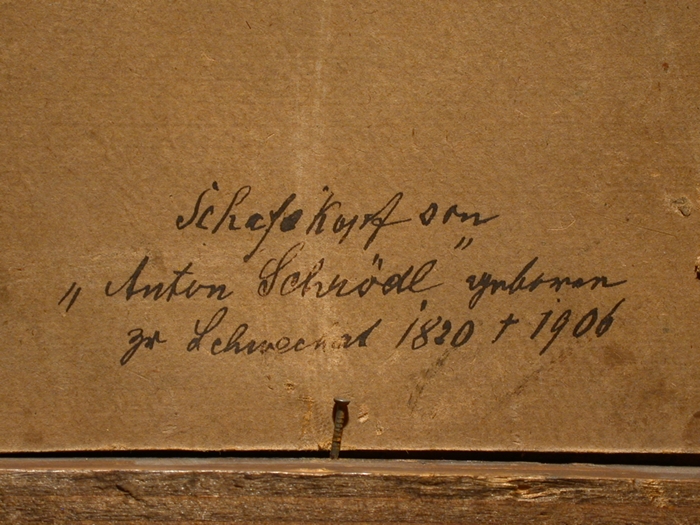 Schafskopf von
„Anton Schrödl" geboren
zu Schwechat 1820 † 1906